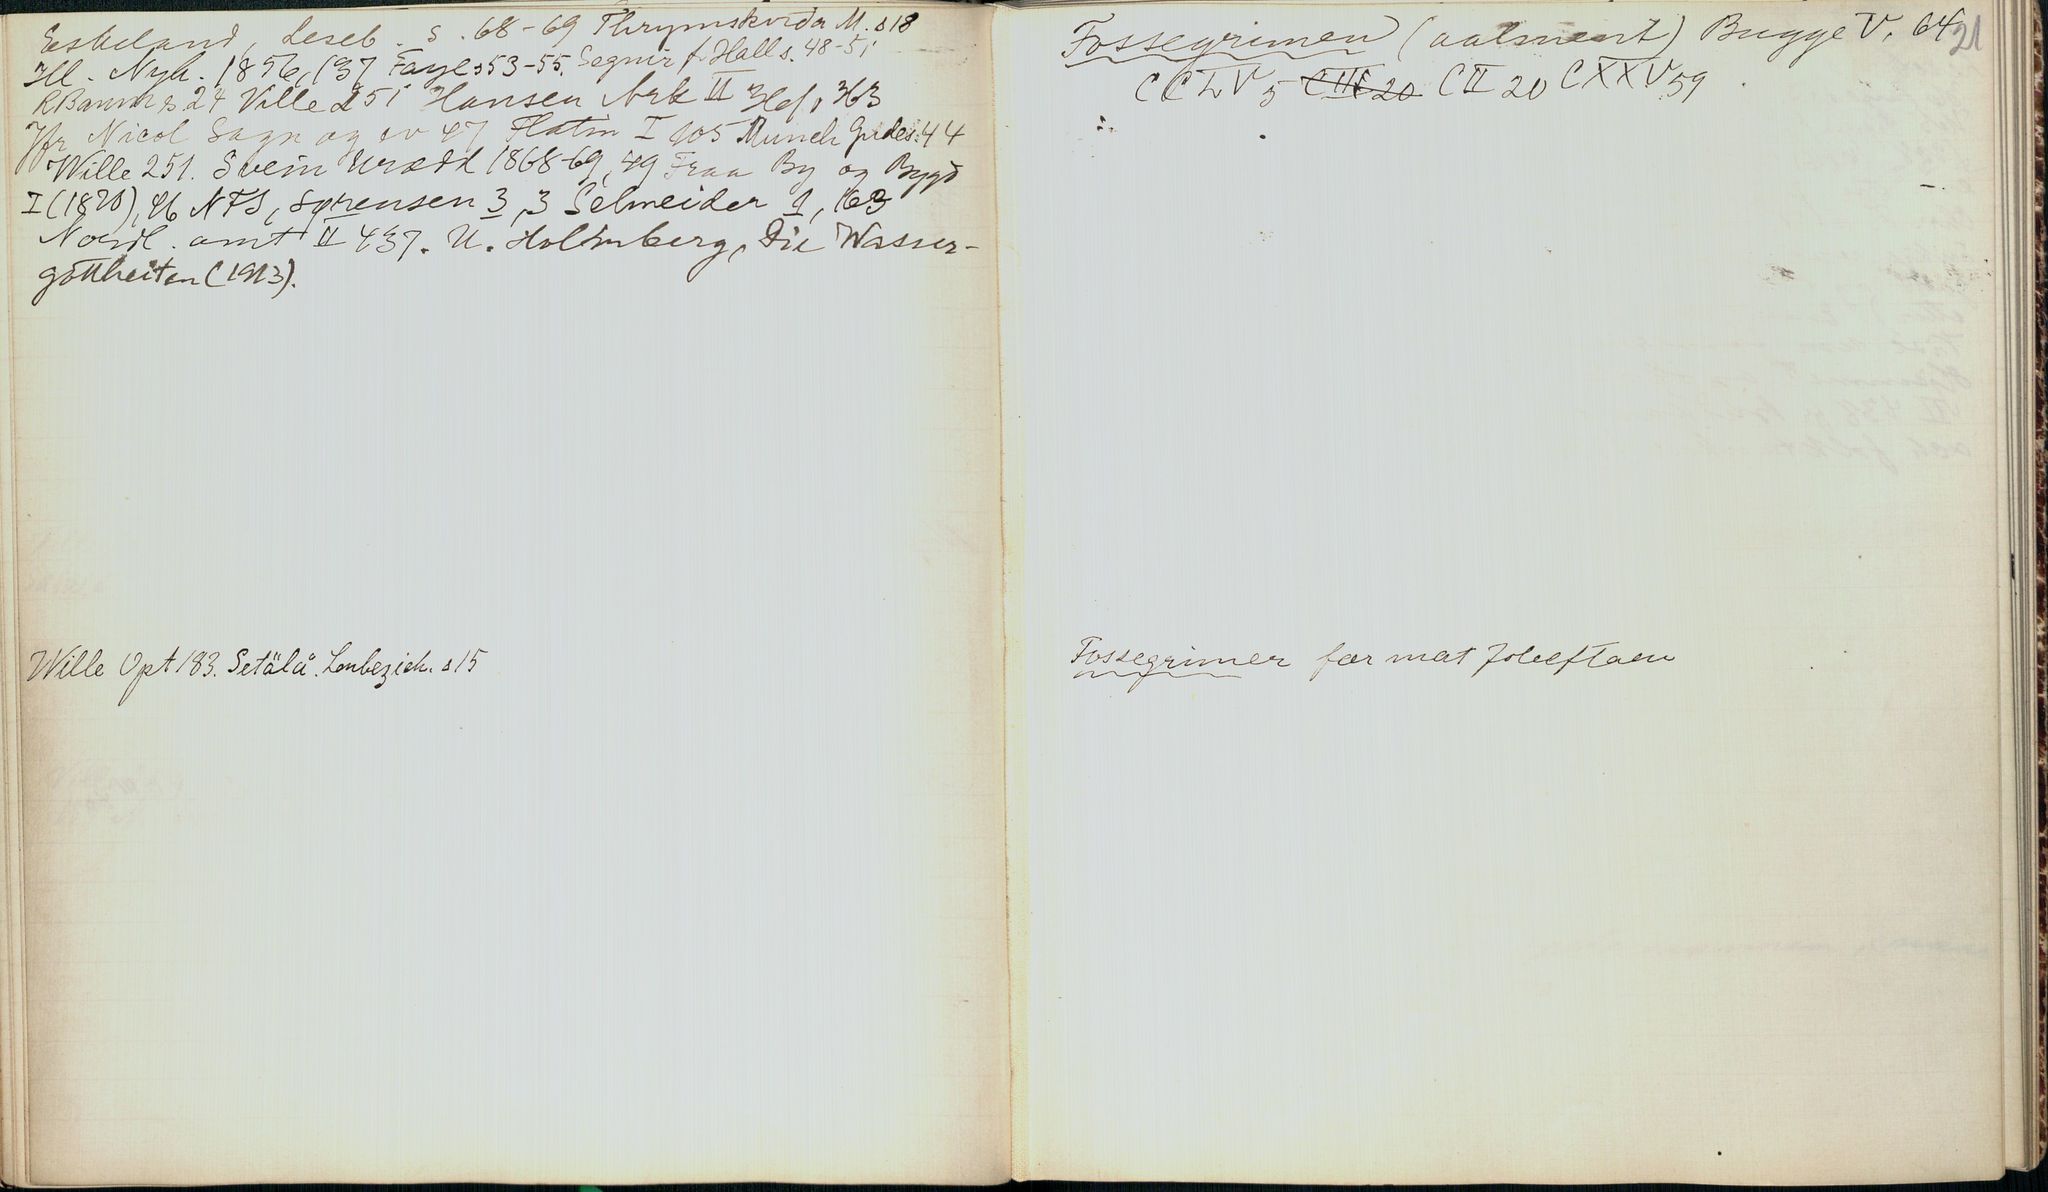 Eskeland, Leseb. s. 68-69 Thrymskvida M. s 18
Ill. Nyh. 1856, 137 Faye s 53-55. Segnir f. Hall s. 48-51
R Bamm s 24 Ville 251 Hansen Ark II 3 Hef, 363
Jfr Nicol Sagn og ev 47 Flatin I 105 Munch Gudes. 44
Wille 251. Svein Urædd 1868-69, 49 Fraa By og Bygd
I (1870), 46 NFS, Sørensen 3, 3 Schneider 1, 163
Nordl. amt II 437. U. Holmberg, Die Wasser-
gottheiten (1913).
Wille Opt 183. Setälä. Lenbezieh. s 15
21
Fossegrimen (aalment) Bugge V. 64
CCLV 5 CIII 20 CII 20 CXXV 59
Fossegrimer fær mat Joleftaen